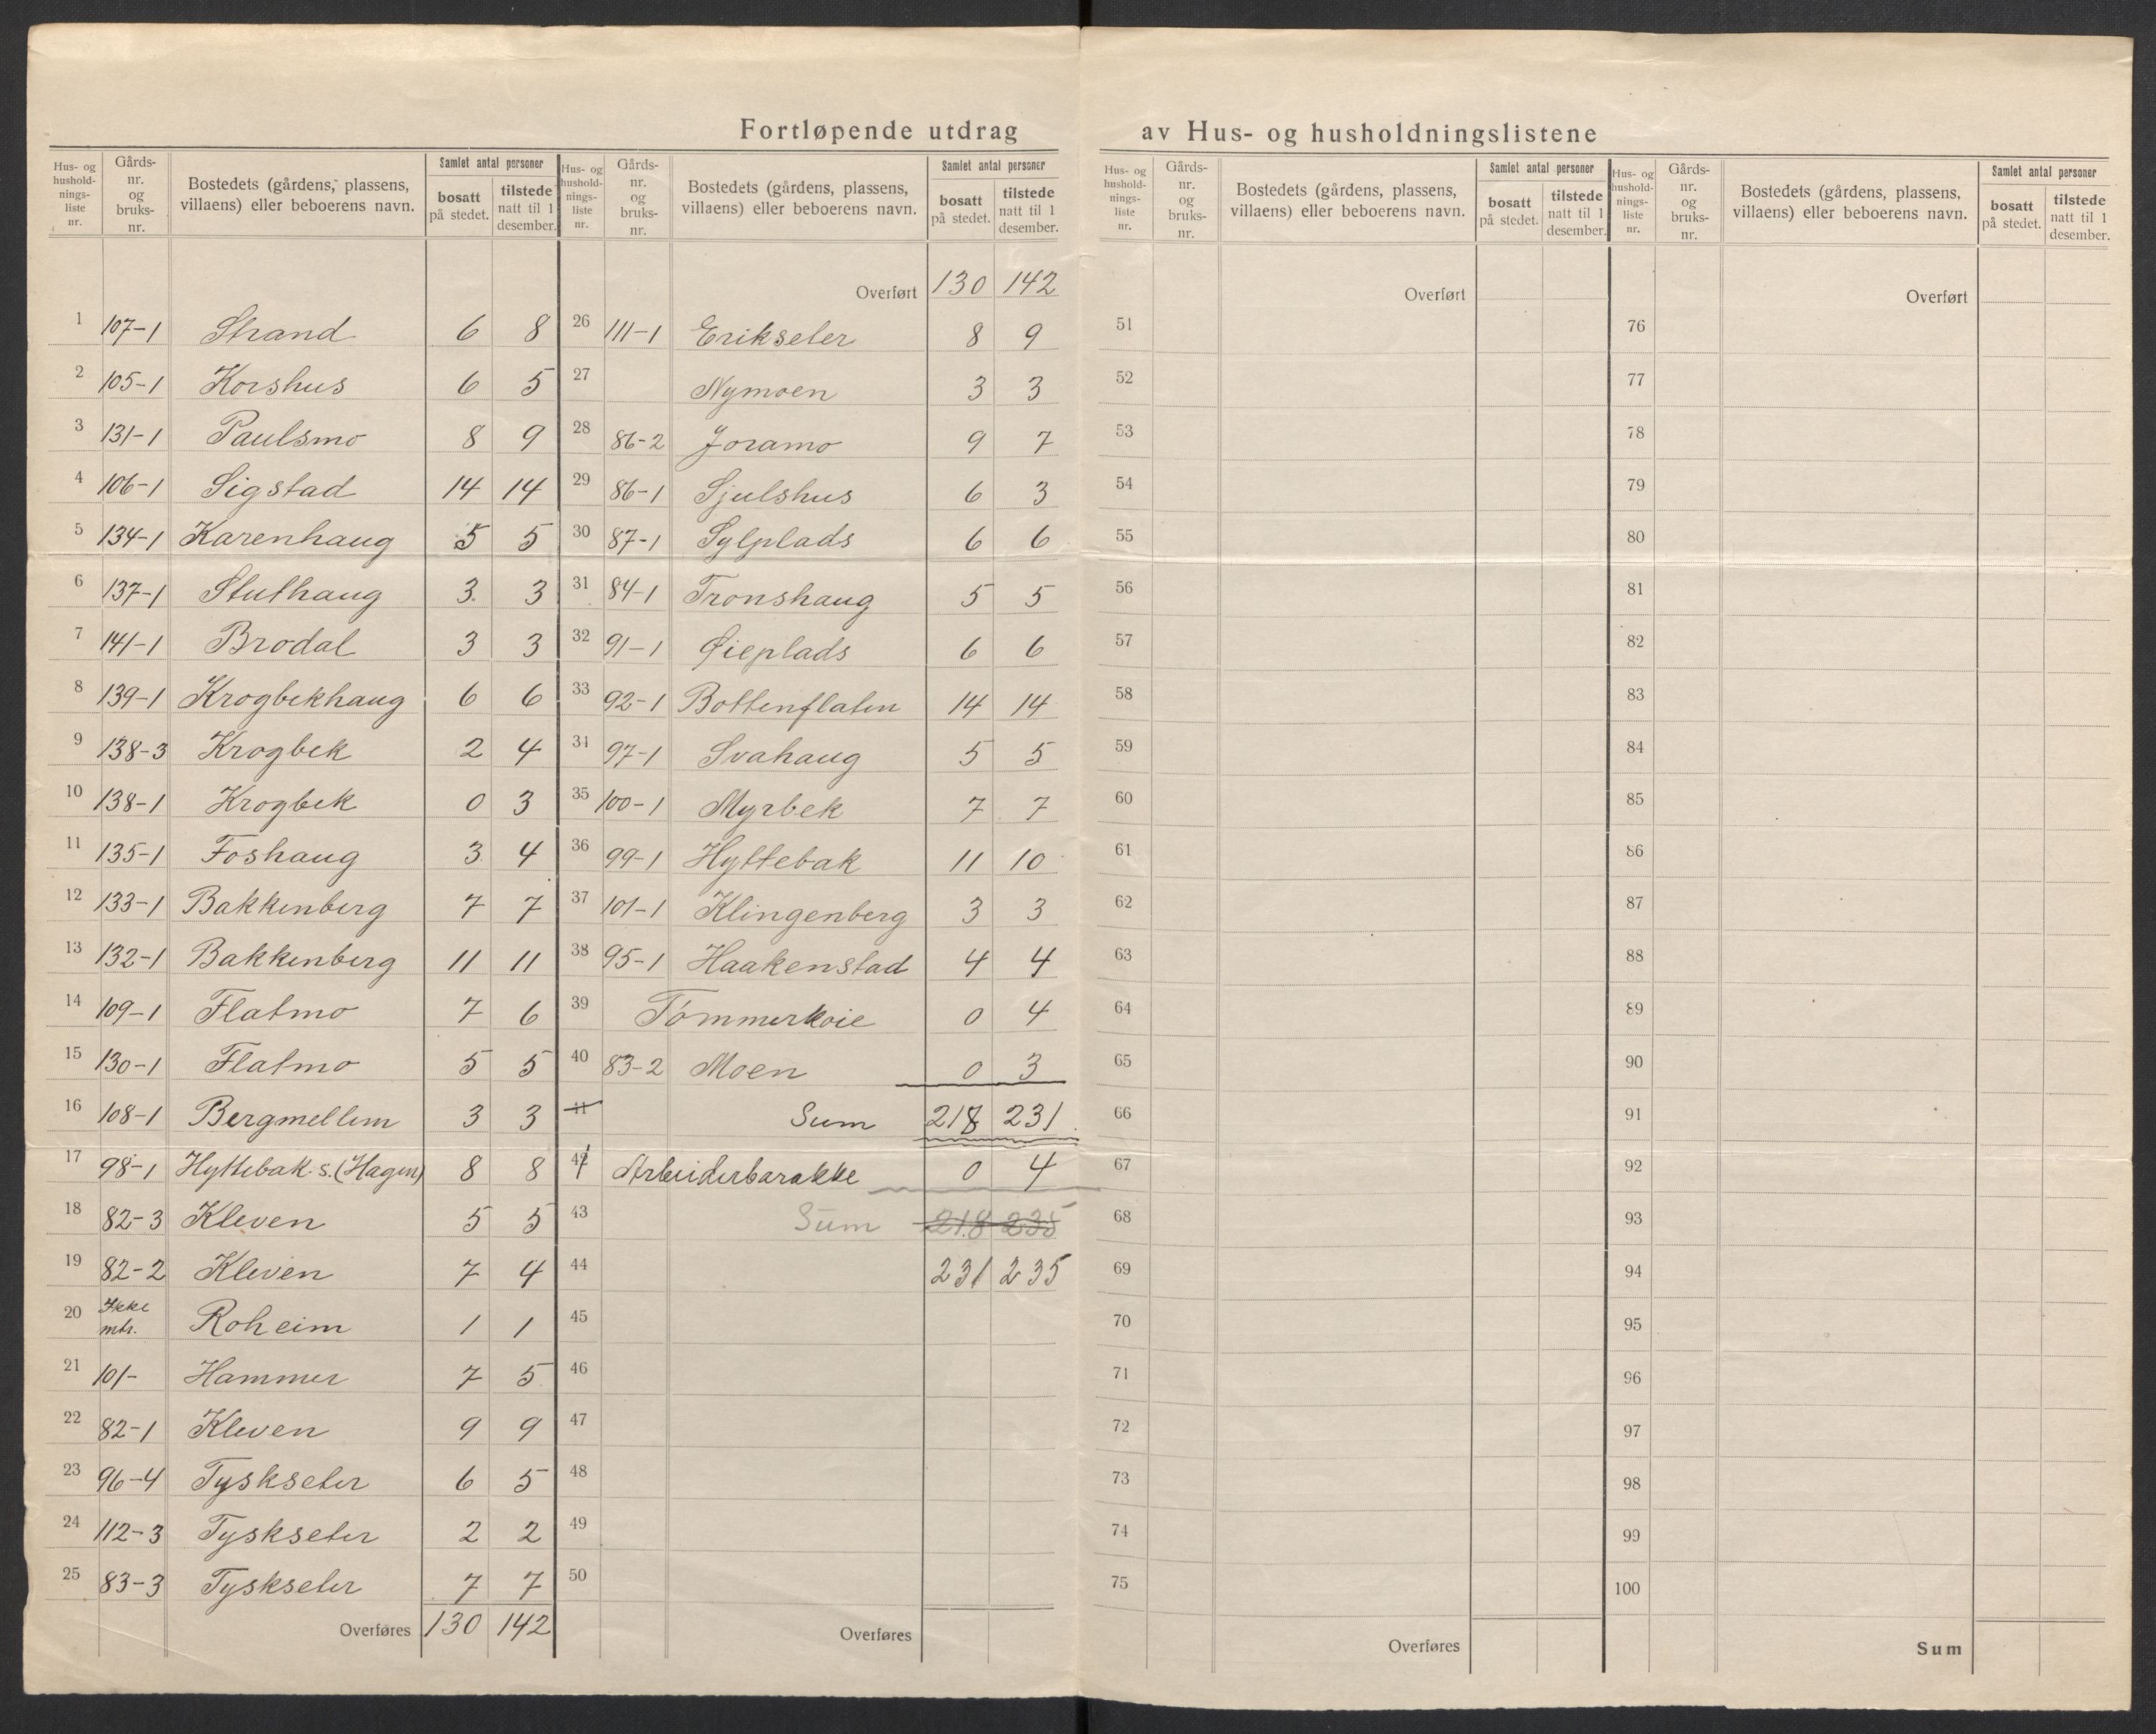 Fortløpende utdrag av Hus- og husholdningslistene
Hus- og hushold-nings-liste nr. Gårds-nr. og bruks-nr. Bostedets (gårdens, plassens, villaens) eller beboerens navn. Samlet antal personer bosatt på stedet. tilstede natt til 1 desember.
1 107-1 Strand 6 8
2 105-1 Korshus 6 5
3 131-1 Paulsmo 8 9
4 106-1 Sigstad 14 14
5 134-1 Karenhaug 5 5
6 137-1 Stuthaug 3 3
7 141-1 Brodal 3 3
8 139-1 Krogbekhaug 6 6
9 138-3 Krogbek 2 4
10 138-1 Krogbek 0 3
11 135-1 Foshaug 3 4
12 133-1 Bakkenberg 7 7
13 132-1 Bakkenberg 11 11
14 109-1 Flatmo 7 6
15 130-1 Flatmo 5 5
16 108-1 Bergmellem 3 3
17 98-1 Hyttebak s. (Hagen) 8 8
18 82-3 Kleven 5 5
19 82-2 Kleven 7 4
20 Ikke mtr. Roheim 1 1
21 101- Hammer 7 5
22 82-1 Kleven 9 9
23 96-4 Tyskseter 6 5
24 112-3 Tyskseter 2 2
25 83-3 Tyskseter 7 7
Overføres 130 142
Hus- og hushold-nings-liste nr. Gårds-nr. og bruks-nr. Bostedets (gårdens, plassens, villaens) eller beboerens navn. Samlet antal personer bosatt på stedet. tilstede natt til 1 desember.
Overført 130 142
26 111-1 Erikseter 8 9
27 Nymoen 3 3
28 86-2 Joramo 9 7
29 86-1 Sjulshus 6 3
30 87-1 Sylplads 6 6
31 84-1 Tronshaug 5 5
32 91-1 Øieplads 6 6
33 92-1 Bottenflaten 14 14
34 97-1 Svahaug 5 5
35 100-1 Myrbek 7 7
36 99-1 Hyttebak 11 10
37 101-1 Klingenberg 3 3
38 95-1 Haakenstad 4 4
39 Tømmerkoie 0 4
40 83-2 Moen 0 3
41 Sum 218 231
41 Arbeiderbarakke 0 4
43 Sum 218 235
44 231 235
45
46
47
48
49
50
Overføres
Hus- og hushold-nings-liste nr. Gårds-nr. og bruks-nr. Bostedets (gårdens, plassens, villaens) eller beboerens navn. Samlet antal personer bosatt på stedet. tilstede natt til 1 desember.
Overført
51
52
53
54
55
56
57
58
59
60
61
62
63
64
65
66
67
68
69
70
71
72
73
74
75
Overføres
Hus- og hushold-nings-liste nr. Gårds-nr. og bruks-nr. Bostedets (gårdens, plassens, villaens) eller beboerens navn. Samlet antal personer bosatt på stedet. tilstede natt til 1 desember.
Overført
76
77
78
79
80
81
82
83
84
85
86
87
88
89
90
91
92
93
94
95
96
97
98
99
100
Sum